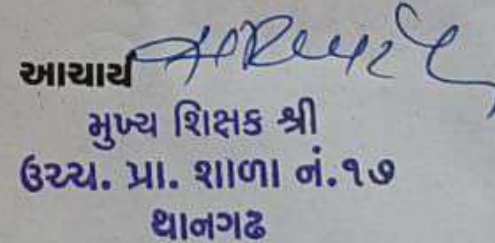 આચાર્ય
મુખ્ય શિક્ષક શ્રી
ઉચ્ચ. પ્રા. શાળા નં.૧૭
થાનગઢ